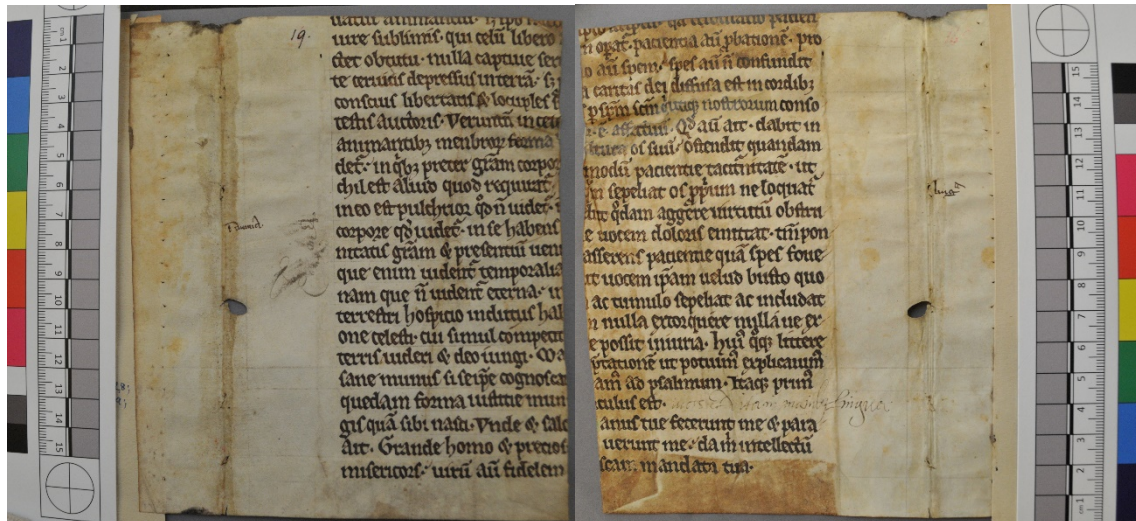 19.
uatiui animantiū. 
iure sublimis. qui celū libero
ctet obtutu. nulla captiue ser
te ceruicis depressus in terrā. sꝫ
conscius libertatis & locuples
testis auctoris. Verūtn̄ in cet
animantibꝫ menbroꝝ forma
det. in qͥbꝫ preter grām corpor
chil est aliud quod requirat.
in eo est pulchrior qd n̄ uidet.
corpore qd uidet. in se habens
nitatis grām & presentiū uen
que enim uident temporalia
nam que n̄ uident eterna. ut
terrestri hospicio indutus hab
one celesti. cui simul competit
terris uideri & deo iungi.
sane munus si seip̄e cognoscat
quedam forma iusticie mun
gis quā sibi nasci. Vnde & salo
Ait. Grande homo & precios
misericors. uirū aū fidelem
n̄ opat. pacientia aū ꝓbationē. pro
o aū spem. spes aū n̄ confundit
a caritas dei diffusa est in cordibꝫ
sp̄m sc̄m nostrorum conso
Qd aū ait. dabit in
os suū. ostendit quandam
modū pacientie taciturnitatē. ut
sepeliat os ꝓprium ne loquat̄
qdam aggere uirtutū obstru
e uocem doloris emittat. tn̄ pon
asserens pacientie quā spes foue
te uocem ip̄am uelud busto quo
ac tumulo sepeliat ac includat
n nulla extorquere nulla ue ex
e possit iniuria. huiꝰ qͦqꝫ littere
p̄tatione ut potuimꝰ explicauimꝰ
am ad psalmum. Itaqꝫ primꝰ
culus est.
anus tue fecerunt me & para
uerunt me. da m̄ intellectū
scam mandata tua.